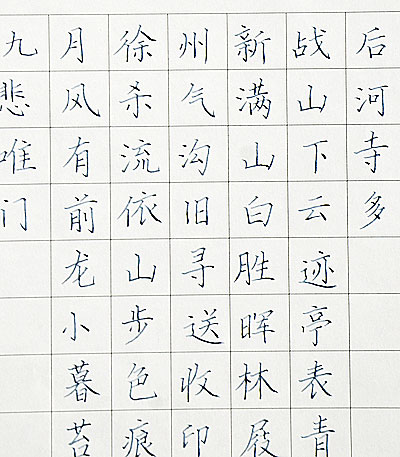 九月徐州新战后
悲风杀气满山河
唯有流沟山下寺
门前依旧白云多
龙山寻胜迹
小步送晖亭
暮色收林表
苔痕印屐青